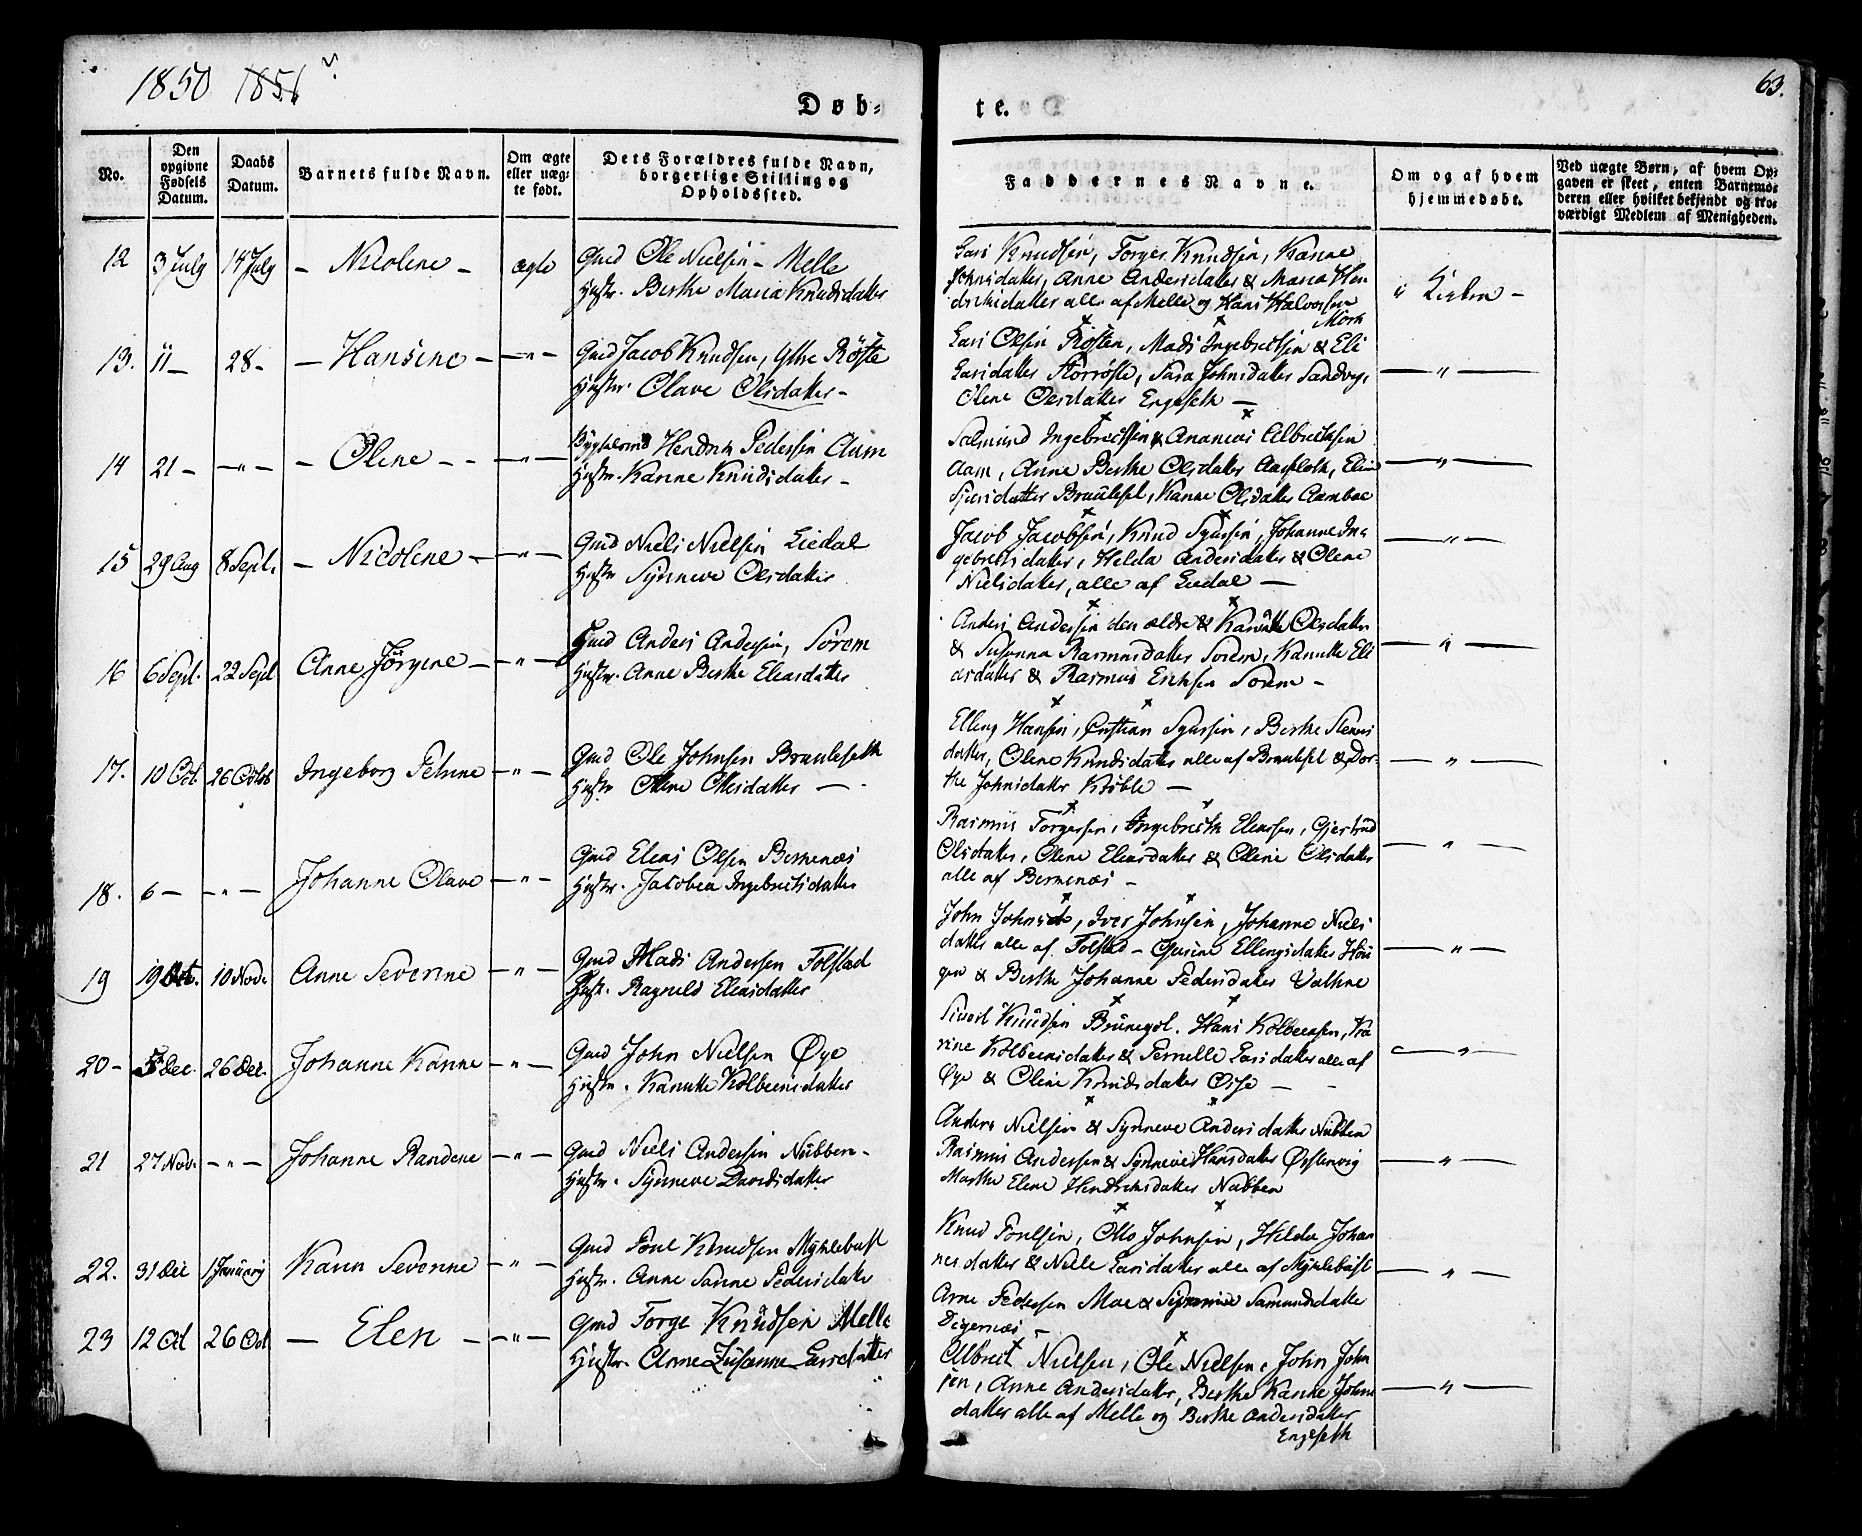 1850 1851
63.
Døb-
te.
No.
Den opgivne Fødsels Datum.
Daabs Datum.
Barnets fulde Navn.
Om ægte eller uægte født.
Dets Forældres fulde Navn, borgerlige Stilling og Opholdssted.
Faddernes Navne.
Om og af hvem hjemmedøbt.
Ved uægte Børn, af hvem Opgaven er skeet, enten Barnemoderen eller hvilket bekjendt og troværdigt Medlem af Menigheden.
12 3 July 14 July – Nicolene – ægte
Gmd Ole Nielsen – Melle
Hustr. Berthe Maria Knudsdatter
Lars Knudsen, Torger Knudsen, Karine
Johnsdatter, Anne Andersdatter & Maria Hen
driksdatter alle af Melle og Hans Halvorsen
Mork
13. 11 – 28 – – Hansine – – " –
Gmd Jacob Knudsen, Ythre Röste
Hustr. Olave Olsdatter –
Lars Olsen Rösten, Mads Ingebretsen & Eli
Larsdatter Storröste, Sara Johnsdatter Sandvig,
Olene Olsdatter Engeseth –
– " –
14 21 – – " – – Olene – – – " –
Bygselmd Hendrik Pedersen Aam
Hustr. Karine Knudsdatter –
Salmund Ingebretsen & Ananias Albretsen
Aam, Anne Berthe Olsdatter Aasfloth, Elen
Sjursdatter Brauteset, Karine Olsdatter Aambae
– " –
15 29 Aug 8 Sept. – Nicolene – – " –
Gmd Niels Nielsen Liedal
Hustr Synneve Olsdatter
Jacob Jacobsen, Knud Sjursen, Johanne In-
gebretsdatter, Helda Andersdatter & Olene
Nielsdatter, alle af Liedal –
– " –
16 6 Sept. 22 Sept Anne Jörgine – – " –
Gmd Anders Andersen, Sörem
Hustr. Anne Berthe Eliasdatter
Anders Andersen den ældre & Kanutte Olsdatter
& Susanna Rasmusdatter Sorem, Kanutte Eli
asdatter & Rasmus Erichsen Sorem –
– " –
17. 10 Oct. 26 Octob Ingeborg Petrine – " –
Gmd Ole Johnsen Brauteseth
Hustr Oline Olsdatter –
Elling Hansen, Cristian Sjursen, Berthe Steens
datter, Oline Knudsdatter alle af Brauteset & Dor-
the Johnsdatter Kröble –
– " –
18. 6 – – " – Johanne Olave – " –
Gmd Elias Olsen Berkenæs
Hustr. Jacobea Ingebretsdatter
Rasmus Torgersen, Ingebreth Eliassen, Gjertrud
Olsdatter, Oline Eliasdatter & Oline Olsdatter
alle af Berkenæs –
– " –
19 19 Oct. 10 Nov. Anne Severine – " –
Gmd Mads Andersen Folstad
Hustr. Ragnild Eliasdatter
John Johnsd, Iver Johnsen, Johanne Niels
datter alle af Folstad – Gurine Ellingsdatter Hou
gen & Berthe Johanne Pedersdatter Vathne
– " –
20 – 5 Dec. 26 Dec. Johanne Karine – " –
Gmd John Nielsen Øye
Hustr. Kanutte Kolbeensdatter
Sivert Knudsen Brunegol. Hans Kolbeensen, Ka
rine Kolbeensdatter & Pernille Larsdatter alle af
Øye & Oline Knudsdatter Øye –
– " –
21 27 Nov. – " – Johanne Randine – " –
Gmd Niels Andersen Nubben –
Hustr. Synneve Davidsdatter
Anders Nielsen & Synneve Andersdatter Nubben
Rasmus Andersen & Synneve Hansdatter Ørstenvig
Marthe Elene Hendriksdatter Nubben
– " –
22. 31 Dec 1 Januarj Karen Severine – " –
Gmd Poul Knudsen Myklebust
Hustr. Anne Sarine Pedersdatter
Knud Poulsen, Otto Johnsen, Hilda Johan
nesdatter & Nille Larsdatter alle af Myklebust
Arne Pedersen Moe & Synnevie Samundsdatter
Digernæs –
– " –
23 12 Oct 26 Oct – Elen – – " –
Gmd Torge Knudsen Melle
Hustr. Anne Zusanne Larsdatter
Albret Nielsen, Ole Nielsen, John John
sen, Anne Andersdatter, Berthe Karine Johns
datter alle af Melle og Berthe Andersdatter
Engeseth
– " –